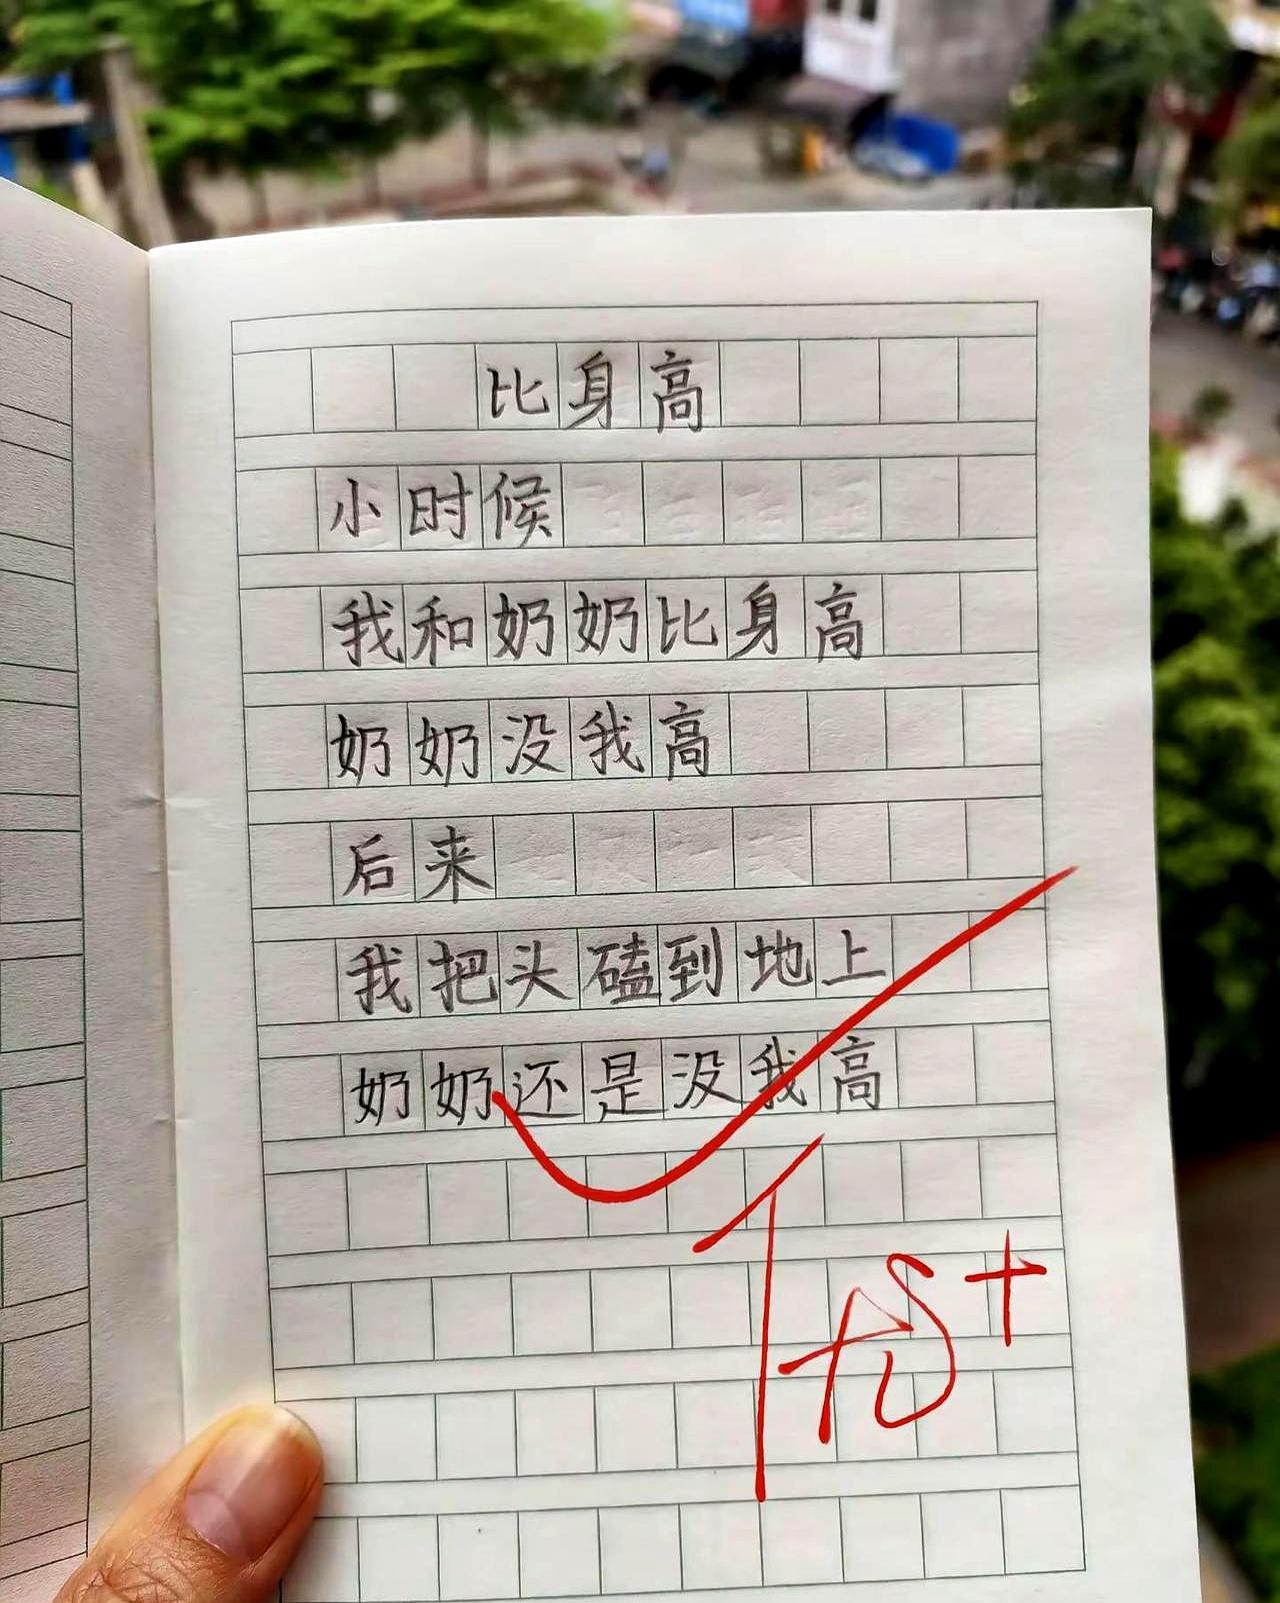 比身高
小时候
我和奶奶比身高
奶奶没我高
后来
我把头磕到地上
奶奶还是没我高
优+